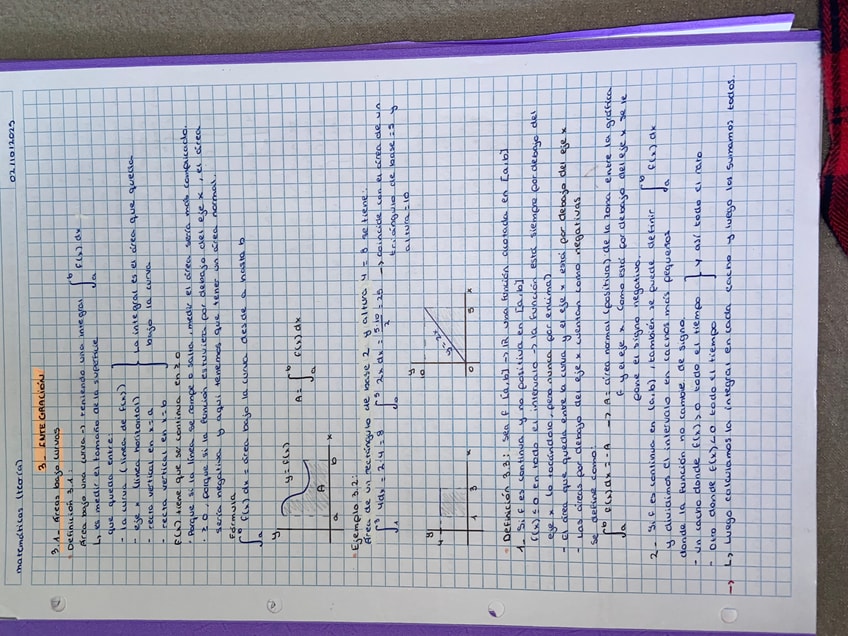 matemáticas (teoría) 02/10/2025
3_ INTEGRACIÓN
3.1_ Áreas bajo curvas
• Definición 3.1:
Área bajo una curva → teniendo una integral ∫ₐᵇ f(x) dx
↳ es medir el tamaño de la superficie
que queda entre:
- la curva (línea de f(x))
- eje x (línea horizontal)
- recta vertical en x=a
- recta vertical en x=b
} La integral es el área que queda
bajo la curva
f(x) tiene que ser continua en ≥0
· Porque si la línea se rompe o salta, medir el área sería más complicado.
· ≥0, porque si la función estuviera por debajo del eje x, el área
sería negativa y aquí tenemos que tener un área normal.
Fórmula
∫ₐᵇ f(x) dx = área bajo la curva desde a hasta b
y y=f(x) A a b x
A = ∫ₐᵇ f(x) dx
• Ejemplo 3.2:
Área de un rectángulo de base 2 y altura 4 = 8 se tiene:
∫₁³ 4dx = 2·4 = 8
∫₀⁵ 2x dx = 5·10/2 = 25 → coincide con el área de un
triángulo de base = 5 y
altura = 10
y 4 1 3 x
y 10 y=2x 0 5 x
• Definición 3.3: Sea f [a,b] → ℝ una función acotada en [a,b]
1_ Si f es continua y no positiva en [a,b]
f(x) ≤ 0 en todo el intervalo → la función está siempre por debajo del
eje x (o tocándolo, pero nunca por encima)
- El área que queda entre la curva y el eje x está por debajo del eje x
- Las áreas por debajo del eje x cuentan como negativas
Se define como:
∫ₐᵇ f(x) dx = -A → A = área normal (positiva) de la zona entre la gráfica
f y el eje x. Como está por debajo del eje x se le
pone el signo negativo.
2_ Si f es continua en [a,b], también se puede definir ∫ₐᵇ f(x) dx
y dividimos el intervalo en cachos más pequeños
donde la función no cambie de signo.
- Un cacho donde f(x) ≥ 0 todo el tiempo
- Otro donde f(x) ≤ 0 todo el tiempo
} Y así todo el rato
→ ↳ Luego calculamos la integral en cada cacho y luego los sumamos todos.